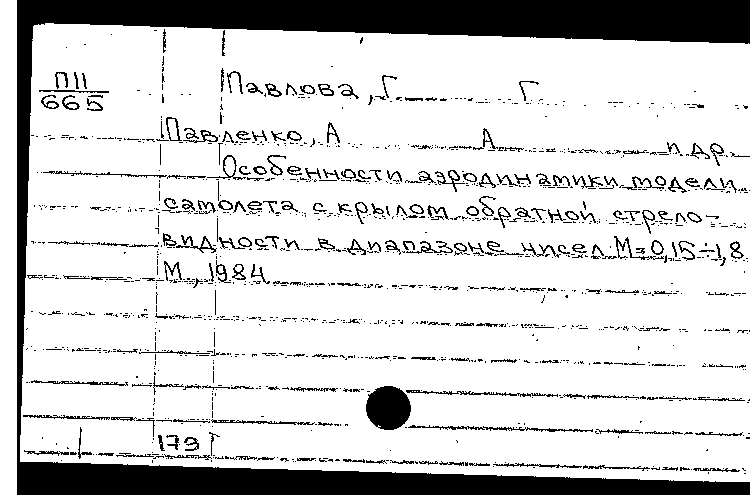 П11
665
Павлова, Г. Г.
Павленко, А А и др.
Особенности аэродинамики модели
самолета с крылом обратной стрело-
видности в диапазоне чисел М=0,15÷1,8
М., 1984
179